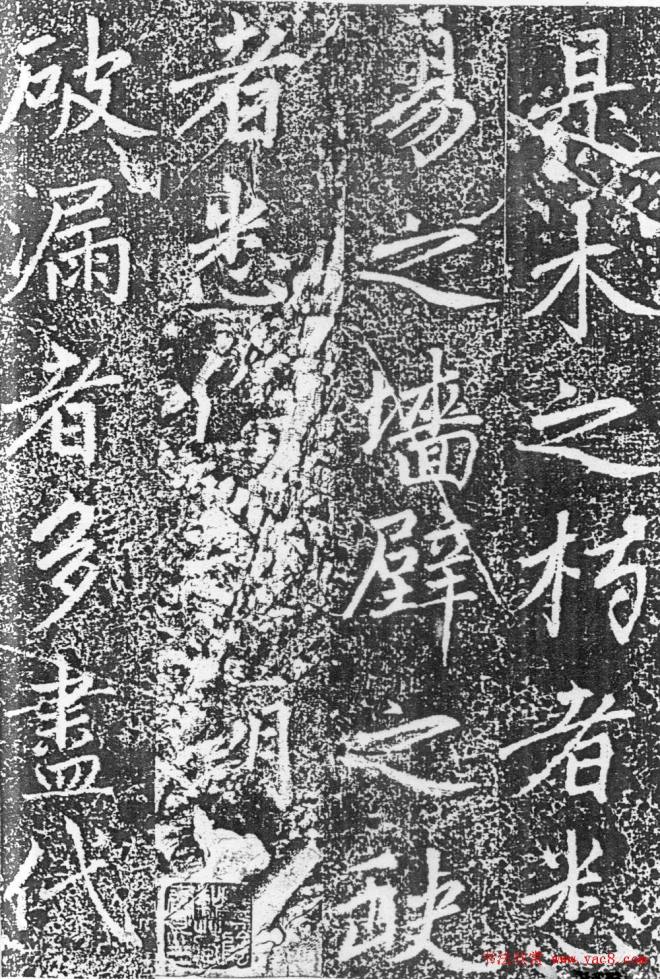 是木之朽者悉
易之墙壁之缺
者悉
破漏者多盡代
书法欣赏 www.yac8.com